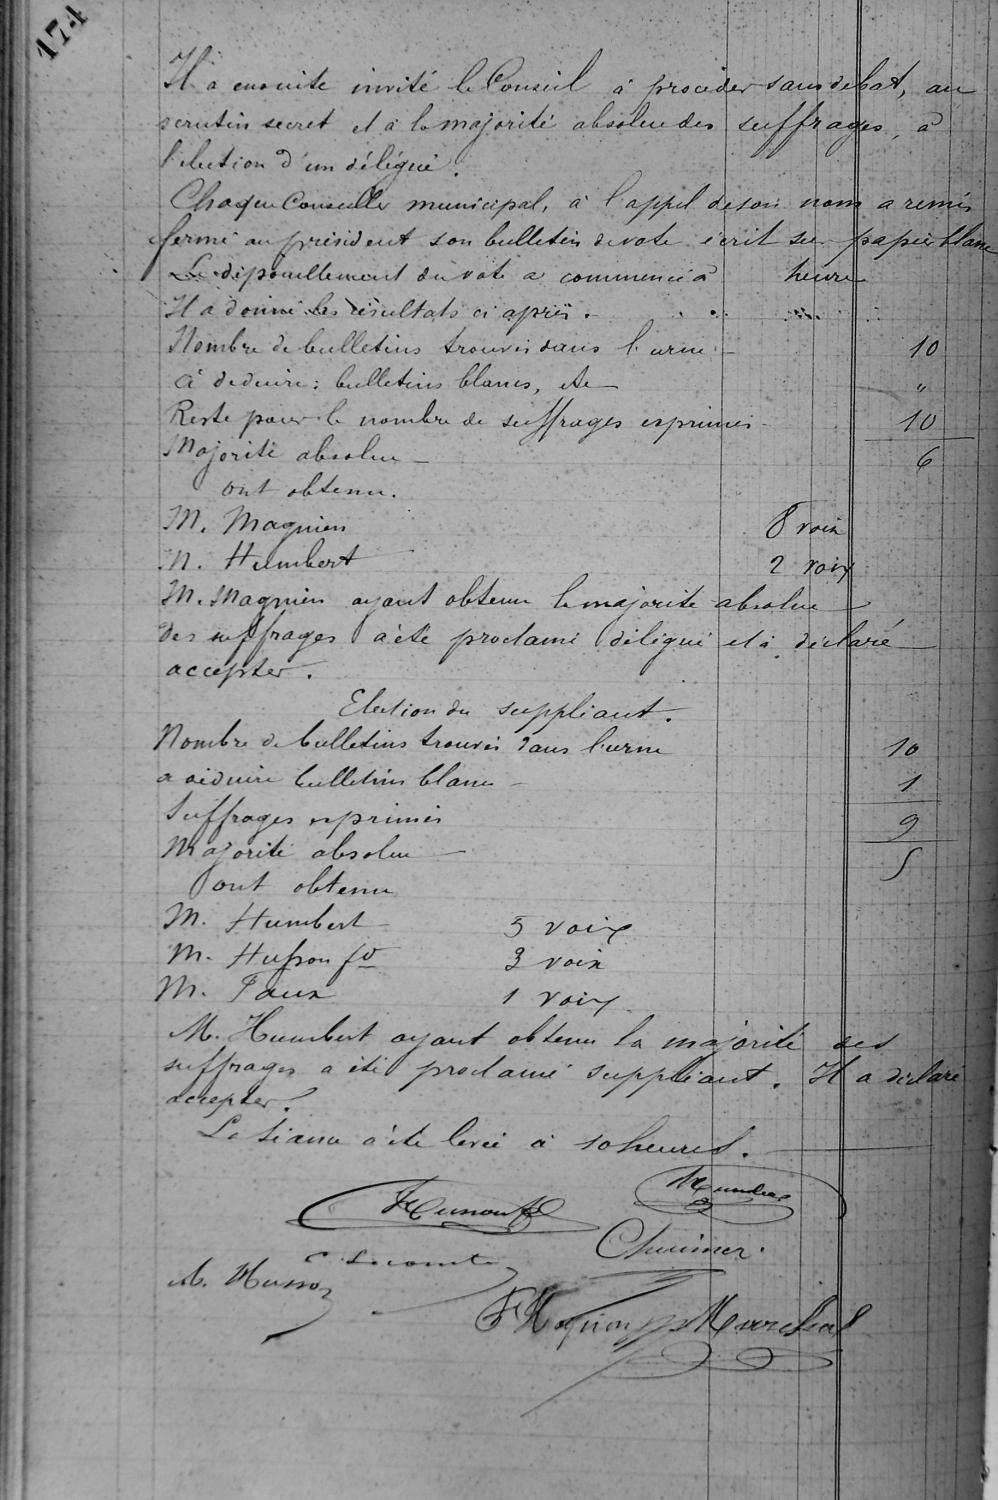 174
Il a ensuite invité le Conseil à procéder sans debat, au
scrutin secret et à la majorité absolue des suffrages, à
l'election d'un délégué.
Chaque Conseiller municipal, à l'appel de son nom a remis
fermé au président son bulletin de vote écrit sur papier blanc
Le dépouillement du vote a commencé à heure
Il a donné les résultats ci après.
Nombre de bulletins trouvés dans l'urne 10
à deduire : bulletins blancs, etc — "
Reste pour le nombre de suffrages exprimés 10
Majorité absolue — 6
ont obtenu.
M. Magnien 8 voix
M. Humbert 2 voix
M. Magnien ayant obtenu la majorité absolue
des suffrages a été proclamé délégué et a déclaré
accepter.
Election du suppliant.
Nombre de bulletins trouvés dans l'urne 10
a déduire bulletins blanc — 1
Suffrages exprimés 9
Majorité absolue — 5
ont obtenu
M. Humbert 5 voix
M. Husson fd 3 voix
M. Faux 1 voix
M. Humbert ayant obtenu la majorité des
suffrages a été proclamé suppliant. Il a déclaré
accepter.
La séance a été levée à 10 heures.
C. Lecomte
M. Husson
Marechal